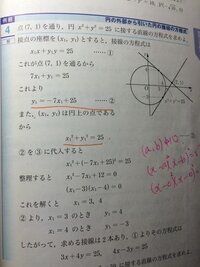 例題
4
円の外部から引いた円の接線の方程式
点(7, 1)を通り，円 x²+y²=25 に接する直線の方程式を求めよ。
接点の座標を(x₁, y₁)とすると，接線の方程式は
x₁x+y₁y=25 …… ①
これが点(7, 1)を通るから
7x₁+y₁=25
これより
y₁=-7x₁+25 …… ②
また，(x₁, y₁)は円上の点である
から
x₁²+y₁²=25 …… ③
②を③に代入すると
x₁²+(-7x₁+25)²=25
整理すると x₁²-7x₁+12=0
(x₁-3)(x₁-4)=0
これを解くと x₁=3, 4
②より，x₁=3 のとき y₁=4
x₁=4 のとき y₁=-3
したがって，求める接線は2本あり，①よりその方程式は
3x+4y=25, 4x-3y=25
x²+y²=25